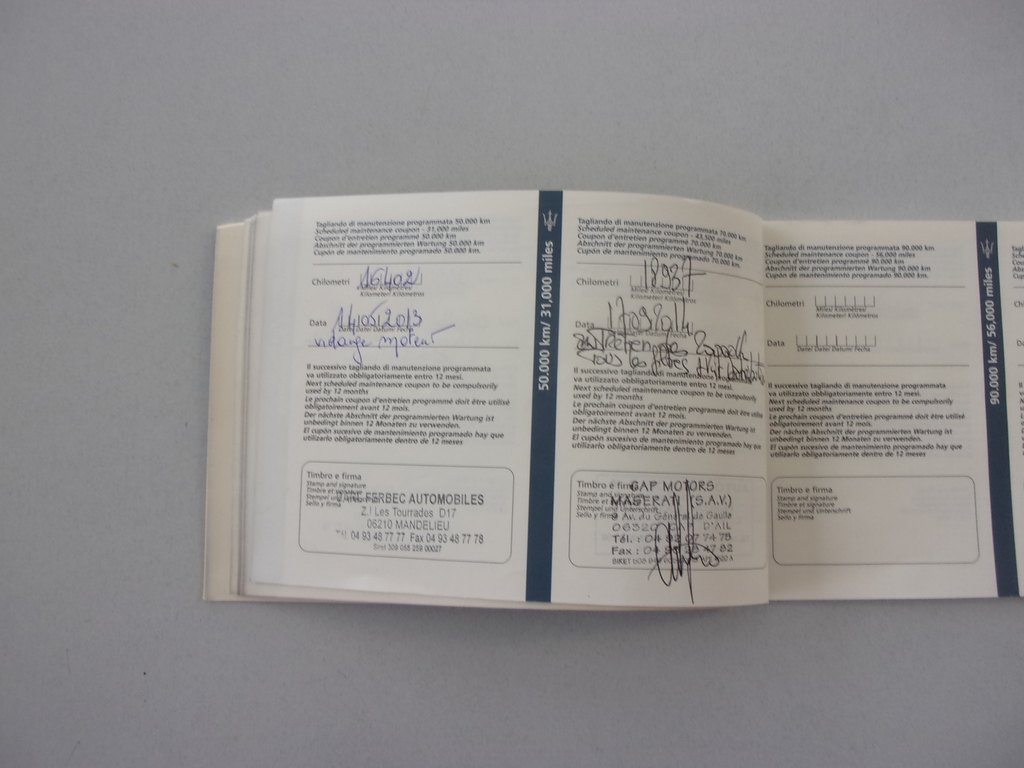 Tagliando di manutenzione programmata 50.000 km
Scheduled maintenance coupon - 31,000 miles
Coupon d'entretien programmé 50.000 km
Abschnitt der programmierten Wartung 50.000 km
Cupón de mantenimiento programado 50.000 km.
Chilometri 16402
Kilometer/ Kilómetros
Data 14052013
vidange moteur
Il successivo tagliando di manutenzione programmata
va utilizzato obbligatoriamente entro 12 mesi.
Next scheduled maintenance coupon to be compulsorily
used by 12 months
Le prochain coupon d'entretien programmé doit être utilisé
obligatoirement avant 12 mois.
Der nächste Abschnitt der programmierten Wartung ist
unbedingt binnen 12 Monaten zu verwenden.
El cupón sucesivo de mantenimiento programado hay que
utilizarlo obligatoriamente dentro de 12 meses
Timbro e firma
Stamp and signature
Timbre et signature
Stempel und
Sello y firma
FERBEC AUTOMOBILES
Z.I Les Tourrades D17
06210 MANDELIEU
04 93 48 77 77 Fax 04 93 48 77 78
50.000 km/ 31,000 miles
Tagliando di manutenzione programmata 70.000 km
Scheduled maintenance coupon - 43,500 miles
Coupon d'entretien programmé 70.000 km
Abschnitt der programmierten Wartung 70.000 km
Cupón de mantenimiento programado 70.000 km.
Chilometri 18937
Kilometer/ Kilómetros
Data 17032014
Il successivo tagliando di manutenzione programmata
va utilizzato obbligatoriamente entro 12 mesi.
Next scheduled maintenance coupon to be compulsorily
used by 12 months
Le prochain coupon d'entretien programmé doit être utilisé
obligatoirement avant 12 mois.
Der nächste Abschnitt der programmierten Wartung ist
unbedingt binnen 12 Monaten zu verwenden.
El cupón sucesivo de mantenimiento programado hay que
utilizarlo obligatoriamente dentro de 12 meses
Timbro e firma
Stamp and
Timbre et
Stempel und Unterschrift
Sello y firma
GAP MOTORS
MASERATI (S.A.V.)
Av. du Général de Gaulle
D'AIL
Tél. : 04 92 07 74 75
Fax : 04
Tagliando di manutenzione programmata 90.000 km
Scheduled maintenance coupon - 56,000 miles
Coupon d'entretien programmé 90.000 km
Abschnitt der programmierten Wartung 90.000 km
Cupón de mantenimiento programado 90.000 km.
Chilometri
Miles/ Kilomètres/
Kilometer/ Kilómetros
Data
Date/ Date/ Datum/ Fecha
Il successivo tagliando di manutenzione programmata
va utilizzato obbligatoriamente entro 12 mesi.
Next scheduled maintenance coupon to be compulsorily
used by 12 months
Le prochain coupon d'entretien programmé doit être utilisé
obligatoirement avant 12 mois.
Der nächste Abschnitt der programmierten Wartung ist
unbedingt binnen 12 Monaten zu verwenden.
El cupón sucesivo de mantenimiento programado hay que
utilizarlo obligatoriamente dentro de 12 meses
Timbro e firma
Stamp and signature
Timbre et signature
Stempel und Unterschrift
Sello y firma
90.000 km/ 56,000 miles